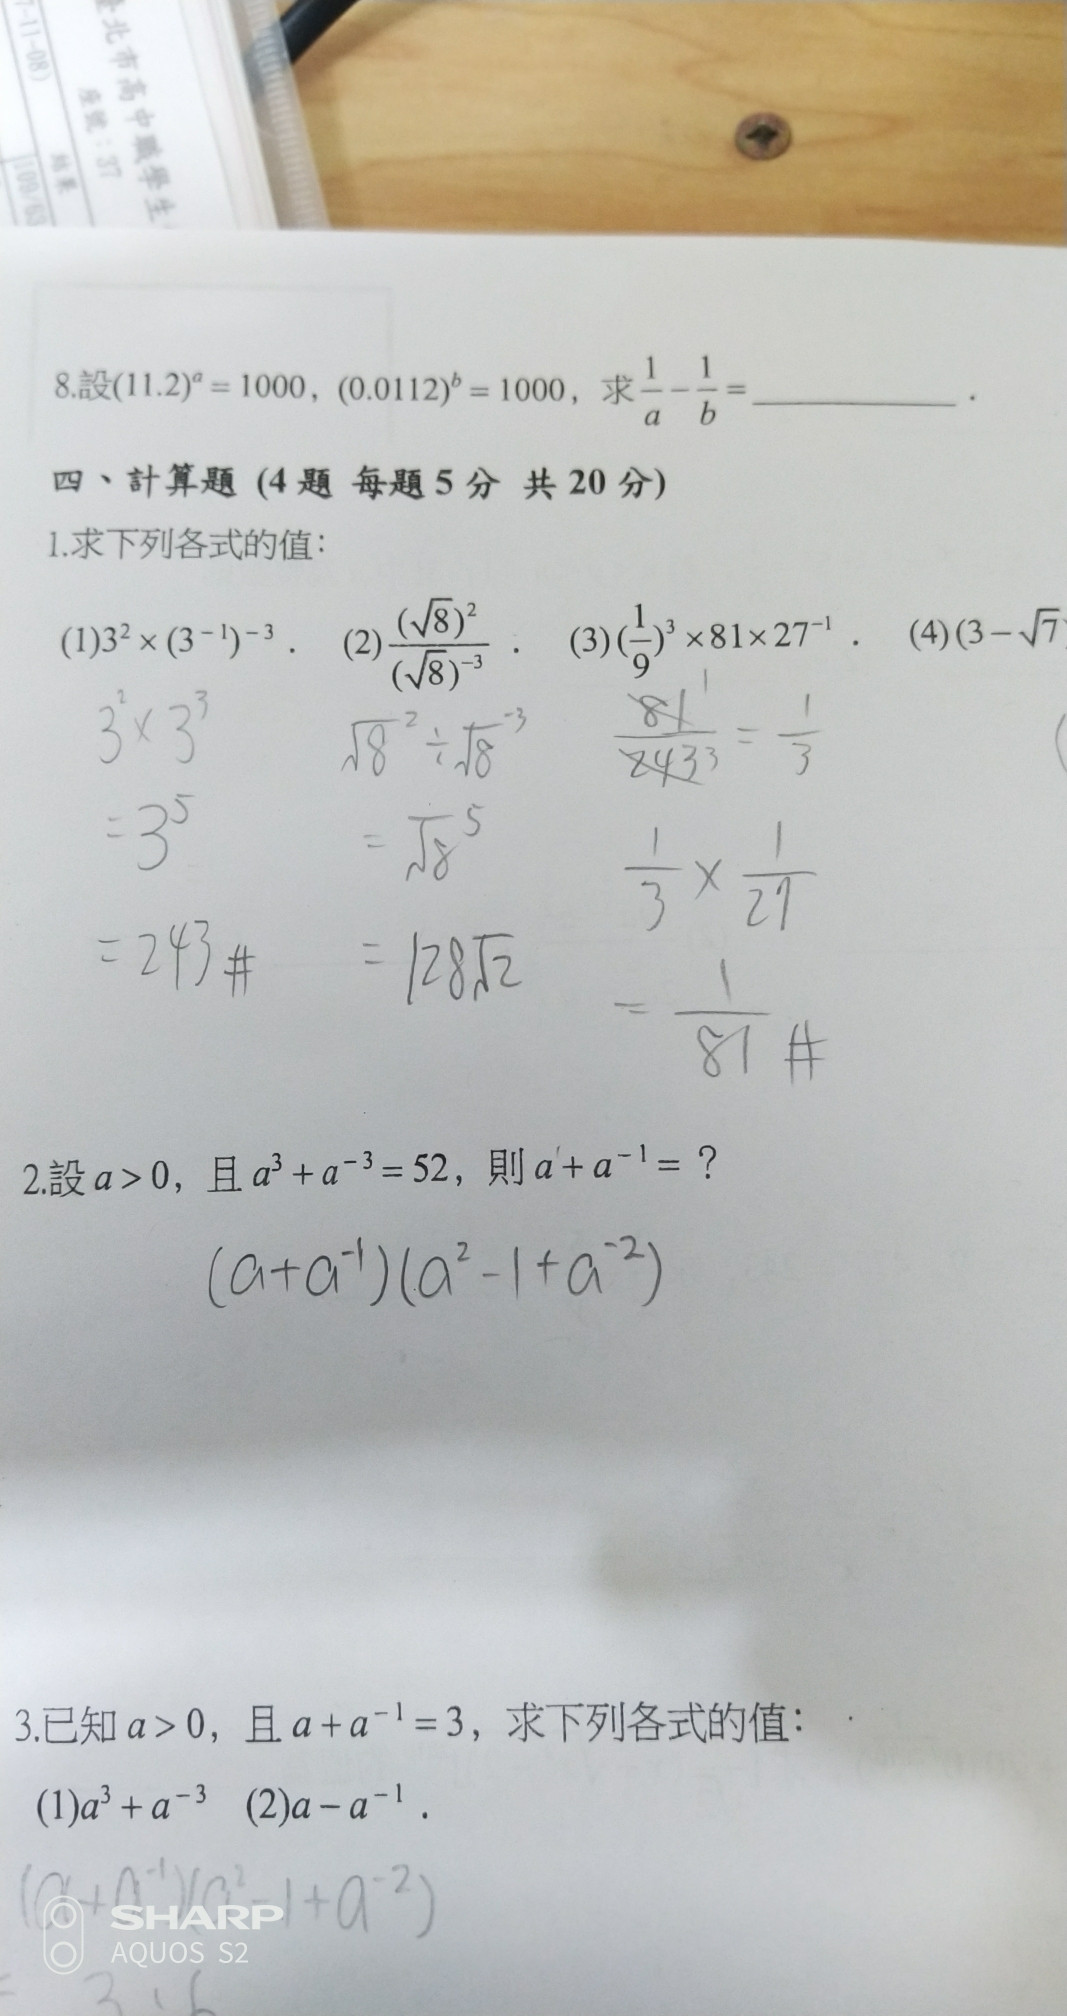 7-11-08)
臺北市高中職學生
座號：37
結果
8.設(11.2)ᵃ = 1000，(0.0112)ᵇ = 1000，求 1/a − 1/b = ________．
四、計算題 (4 題 每題 5 分 共 20 分)
1.求下列各式的值：
(1)3² × (3⁻¹)⁻³． (2)(√8)²/(√8)⁻³． (3)(1/9)³ × 81 × 27⁻¹． (4)(3 − √7)
3² × 3³
= 3⁵
= 243 #
√8² ÷ √8⁻³
= √8⁵
= 128√2
81/243 = 1/3
1/3 × 1/27
= 1/81 #
2.設 a > 0，且 a³ + a⁻³ = 52，則 a + a⁻¹ = ？
(a+a⁻¹)(a²-1+a⁻²)
3.已知 a > 0，且 a + a⁻¹ = 3，求下列各式的值：
(1)a³ + a⁻³ (2)a − a⁻¹．
(a+a⁻¹)(a²-1+a⁻²)
SHARP
AQUOS S2